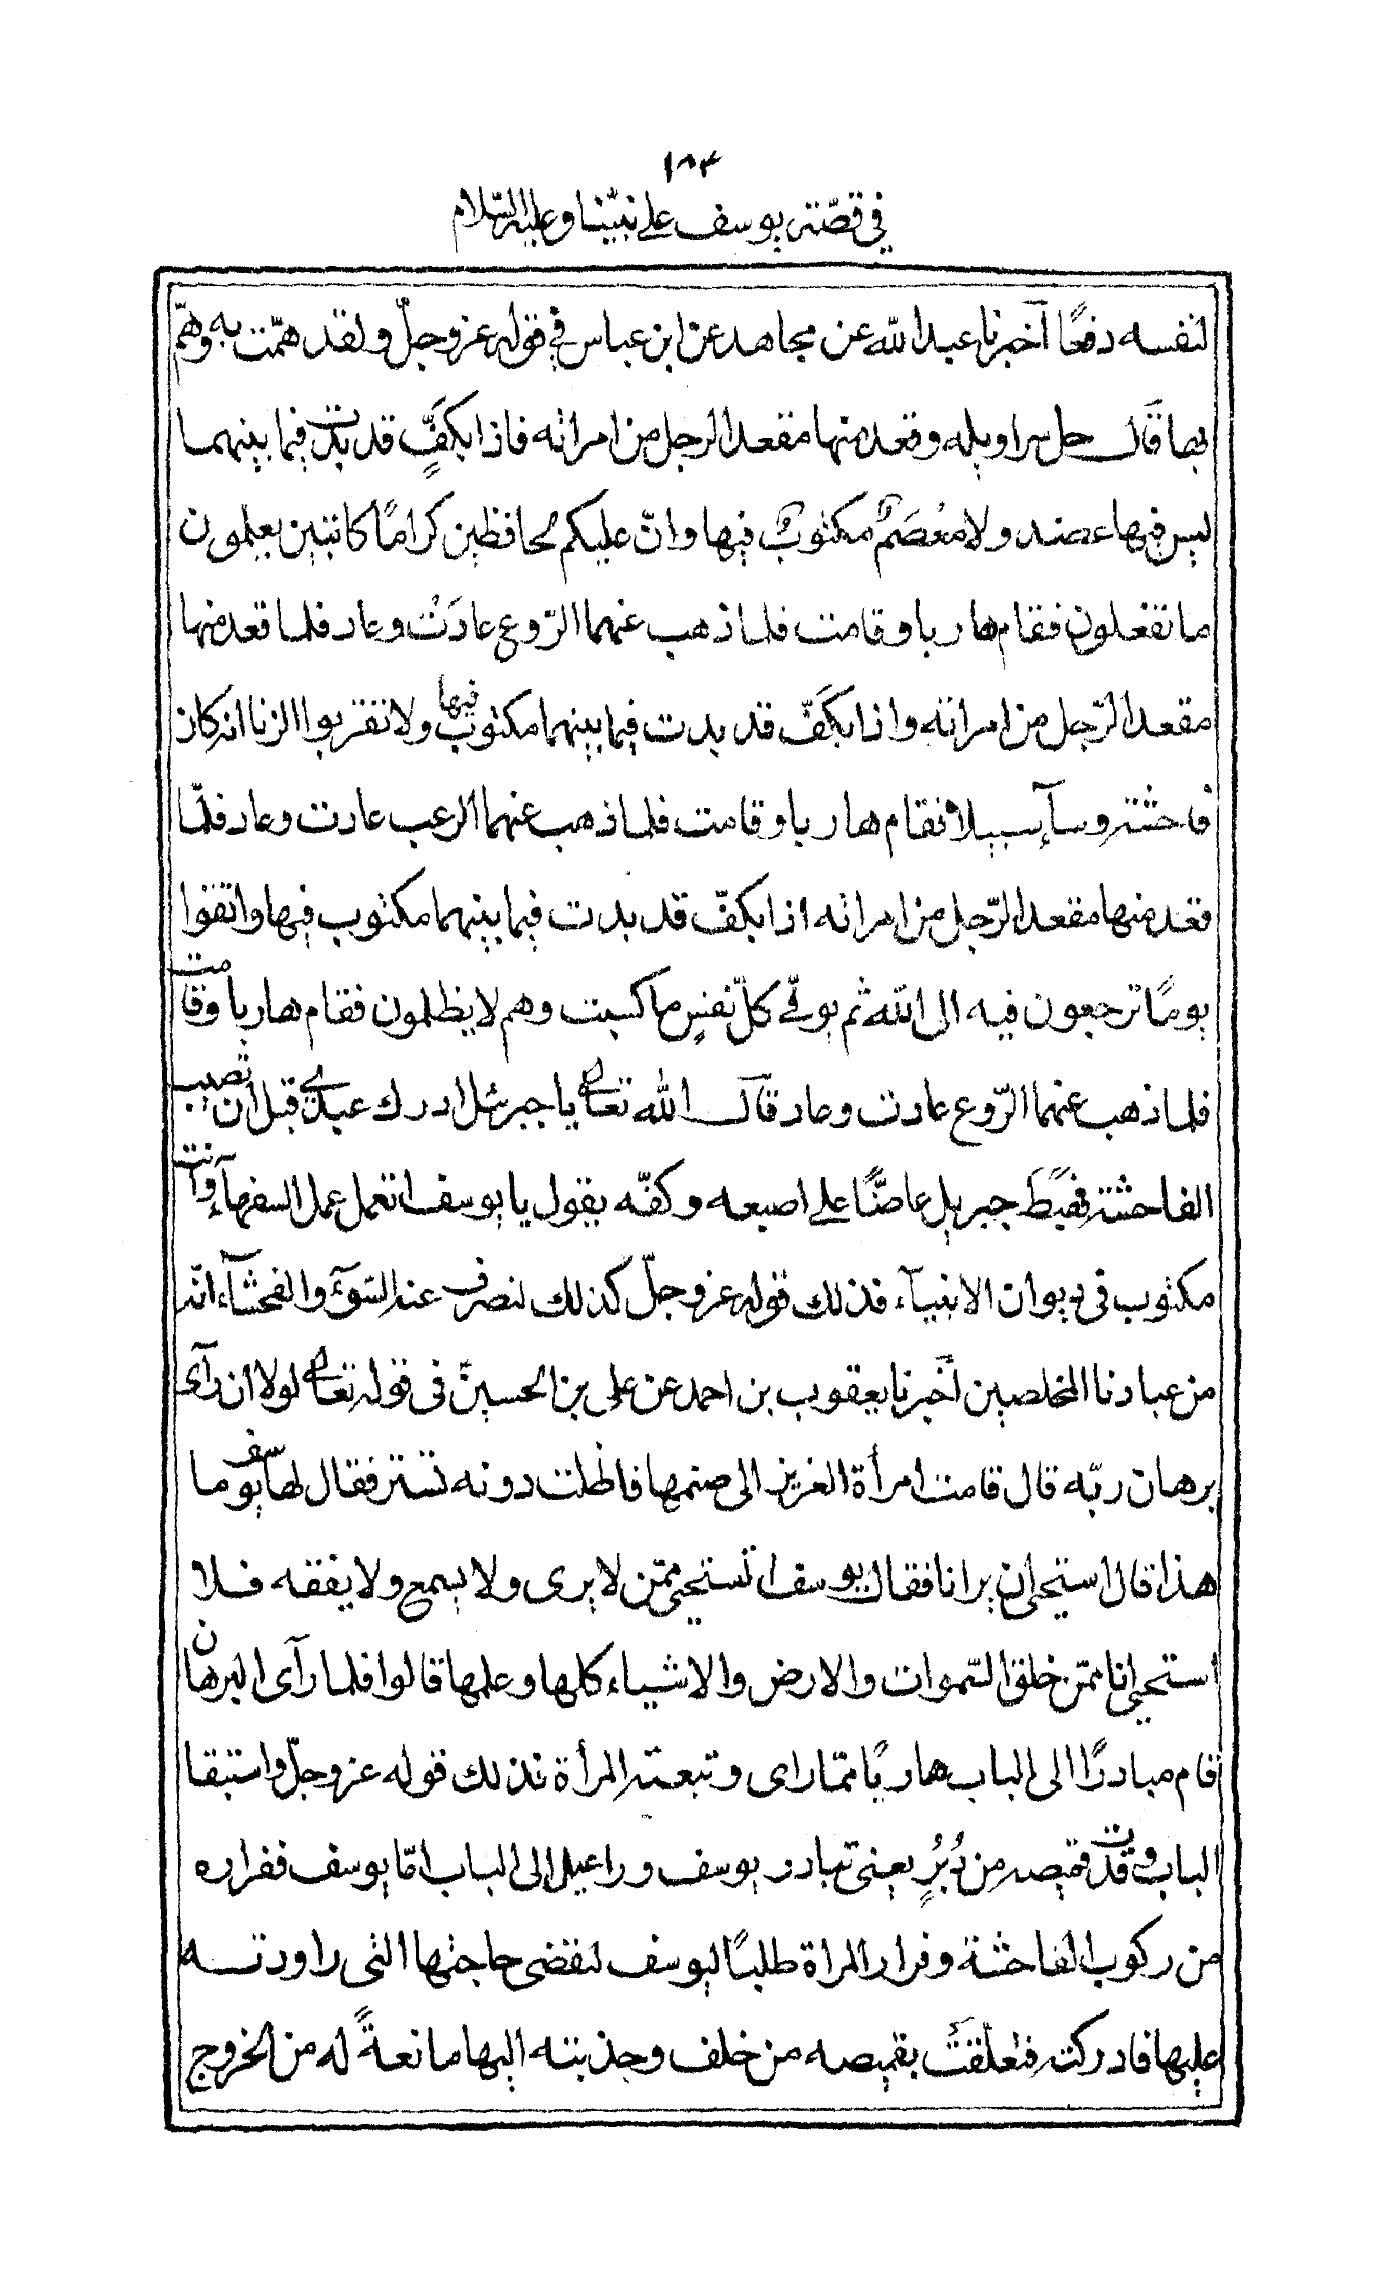 ١٨٣
في قصّة يوسف على نبيّنا وعليه السّلام
لنفسه دفعًا أخبرنا عبد الله عن مجاهد عن ابن عباس في قوله عز وجلّ ولقد همّت به وهمّ
بها قال حل سراويله وقعد منها مقعد الرجل من امراته فاذا بكفٍّ قد بدت فيما بينهما
ليس فيها عضد ولا معصم مكتوب فيها وانّ عليكم لحافظين كرامًا كاتبين يعلمون
ما تفعلون فقام هاربا وقامت فلما ذهب عنهما الرّوع عادت وعاد فلما قعد منها
مقعد الرّجل من امراته واذا بكفّ قد بدت فيما بينهما مكتوب فيها ولا تقربوا الزنا انه كان
فاحشة وسآء سبيلا فقام هاربا وقامت فلما ذهب عنهما الرعب عادت وعاد فلمّا
قعد منها مقعد الرّجل من امراته اذا بكفّ قد بدت فيما بينهما مكتوب فيها واتقوا
يومًا ترجعون فيه الى الله ثم توفّى كلّ نفسٍ ما كسبت وهم لا يظلمون فقام هاربا وقامت
فلما ذهب عنهما الرّوع عادت وعاد قال الله تعالى يا جبرئل ادرك عبدي قبل ان تصيب
الفاحشة فهبط جبريل عاضًّا على اصبعه وكفّه يقول يا يوسف اتعمل عمل السفهآء وانت
مكتوب في ديوان الانبيآء فذلك قوله عز وجلّ كذلك لنصرف عنه السّوء والفحشآء انّه
من عبادنا المخلصين أخبرنا يعقوب بن احمد عن على بن الحسين في قوله تعالى لولا ان رآى
برهان ربّه قال قامت امرأة العزيز الى صنمها فاظلت دونه تستر فقال لها يوسف ما
هذا قال استحى ان يرانا فقال يوسف اتستحى ممّن لا يرى ولا يسمع ولا يفقه فلا
استحى انا ممّن خلق السّموات والارض والاشياء كلها وعلمها قالوا فلما رآى البرهان
قام مبادرًا الى الباب هاربًا ممّا راى وتبعته المرأة فذلك قوله عز وجلّ واستبقا
الباب وقدّت قميصه من دُبُرٍ يعنى تبادر يوسف وراعيل الى الباب امّا يوسف ففراره
من ركوب الفاحشة وفرار المراة طلبًا ليوسف لتقضى حاجتها التى راودته
عليها فادركته فتعلّقت بقميصه من خلف وجذبته اليها مانعةً له من الخروج